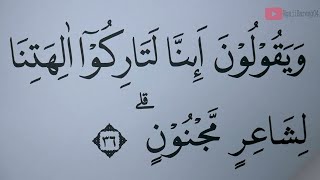 وَيَقُوْلُوْنَ اَىِٕنَّا لَتَارِكُوْٓا اٰلِهَتِنَا
لِشَاعِرٍ مَّجْنُوْنٍ ۗ ٣٦